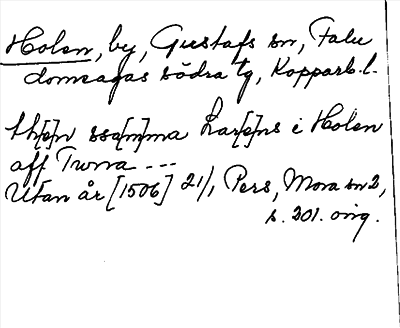 Holen, by, Gustafs sn, Falu
domsagas södra tg, Kopparb. l.
th[e]n ssa[m]ma Lar[e]ns i Holen
aff Twna ---
Utan år [1506] 21/1, Pers, Mora sn 2,
s. 201. orig.